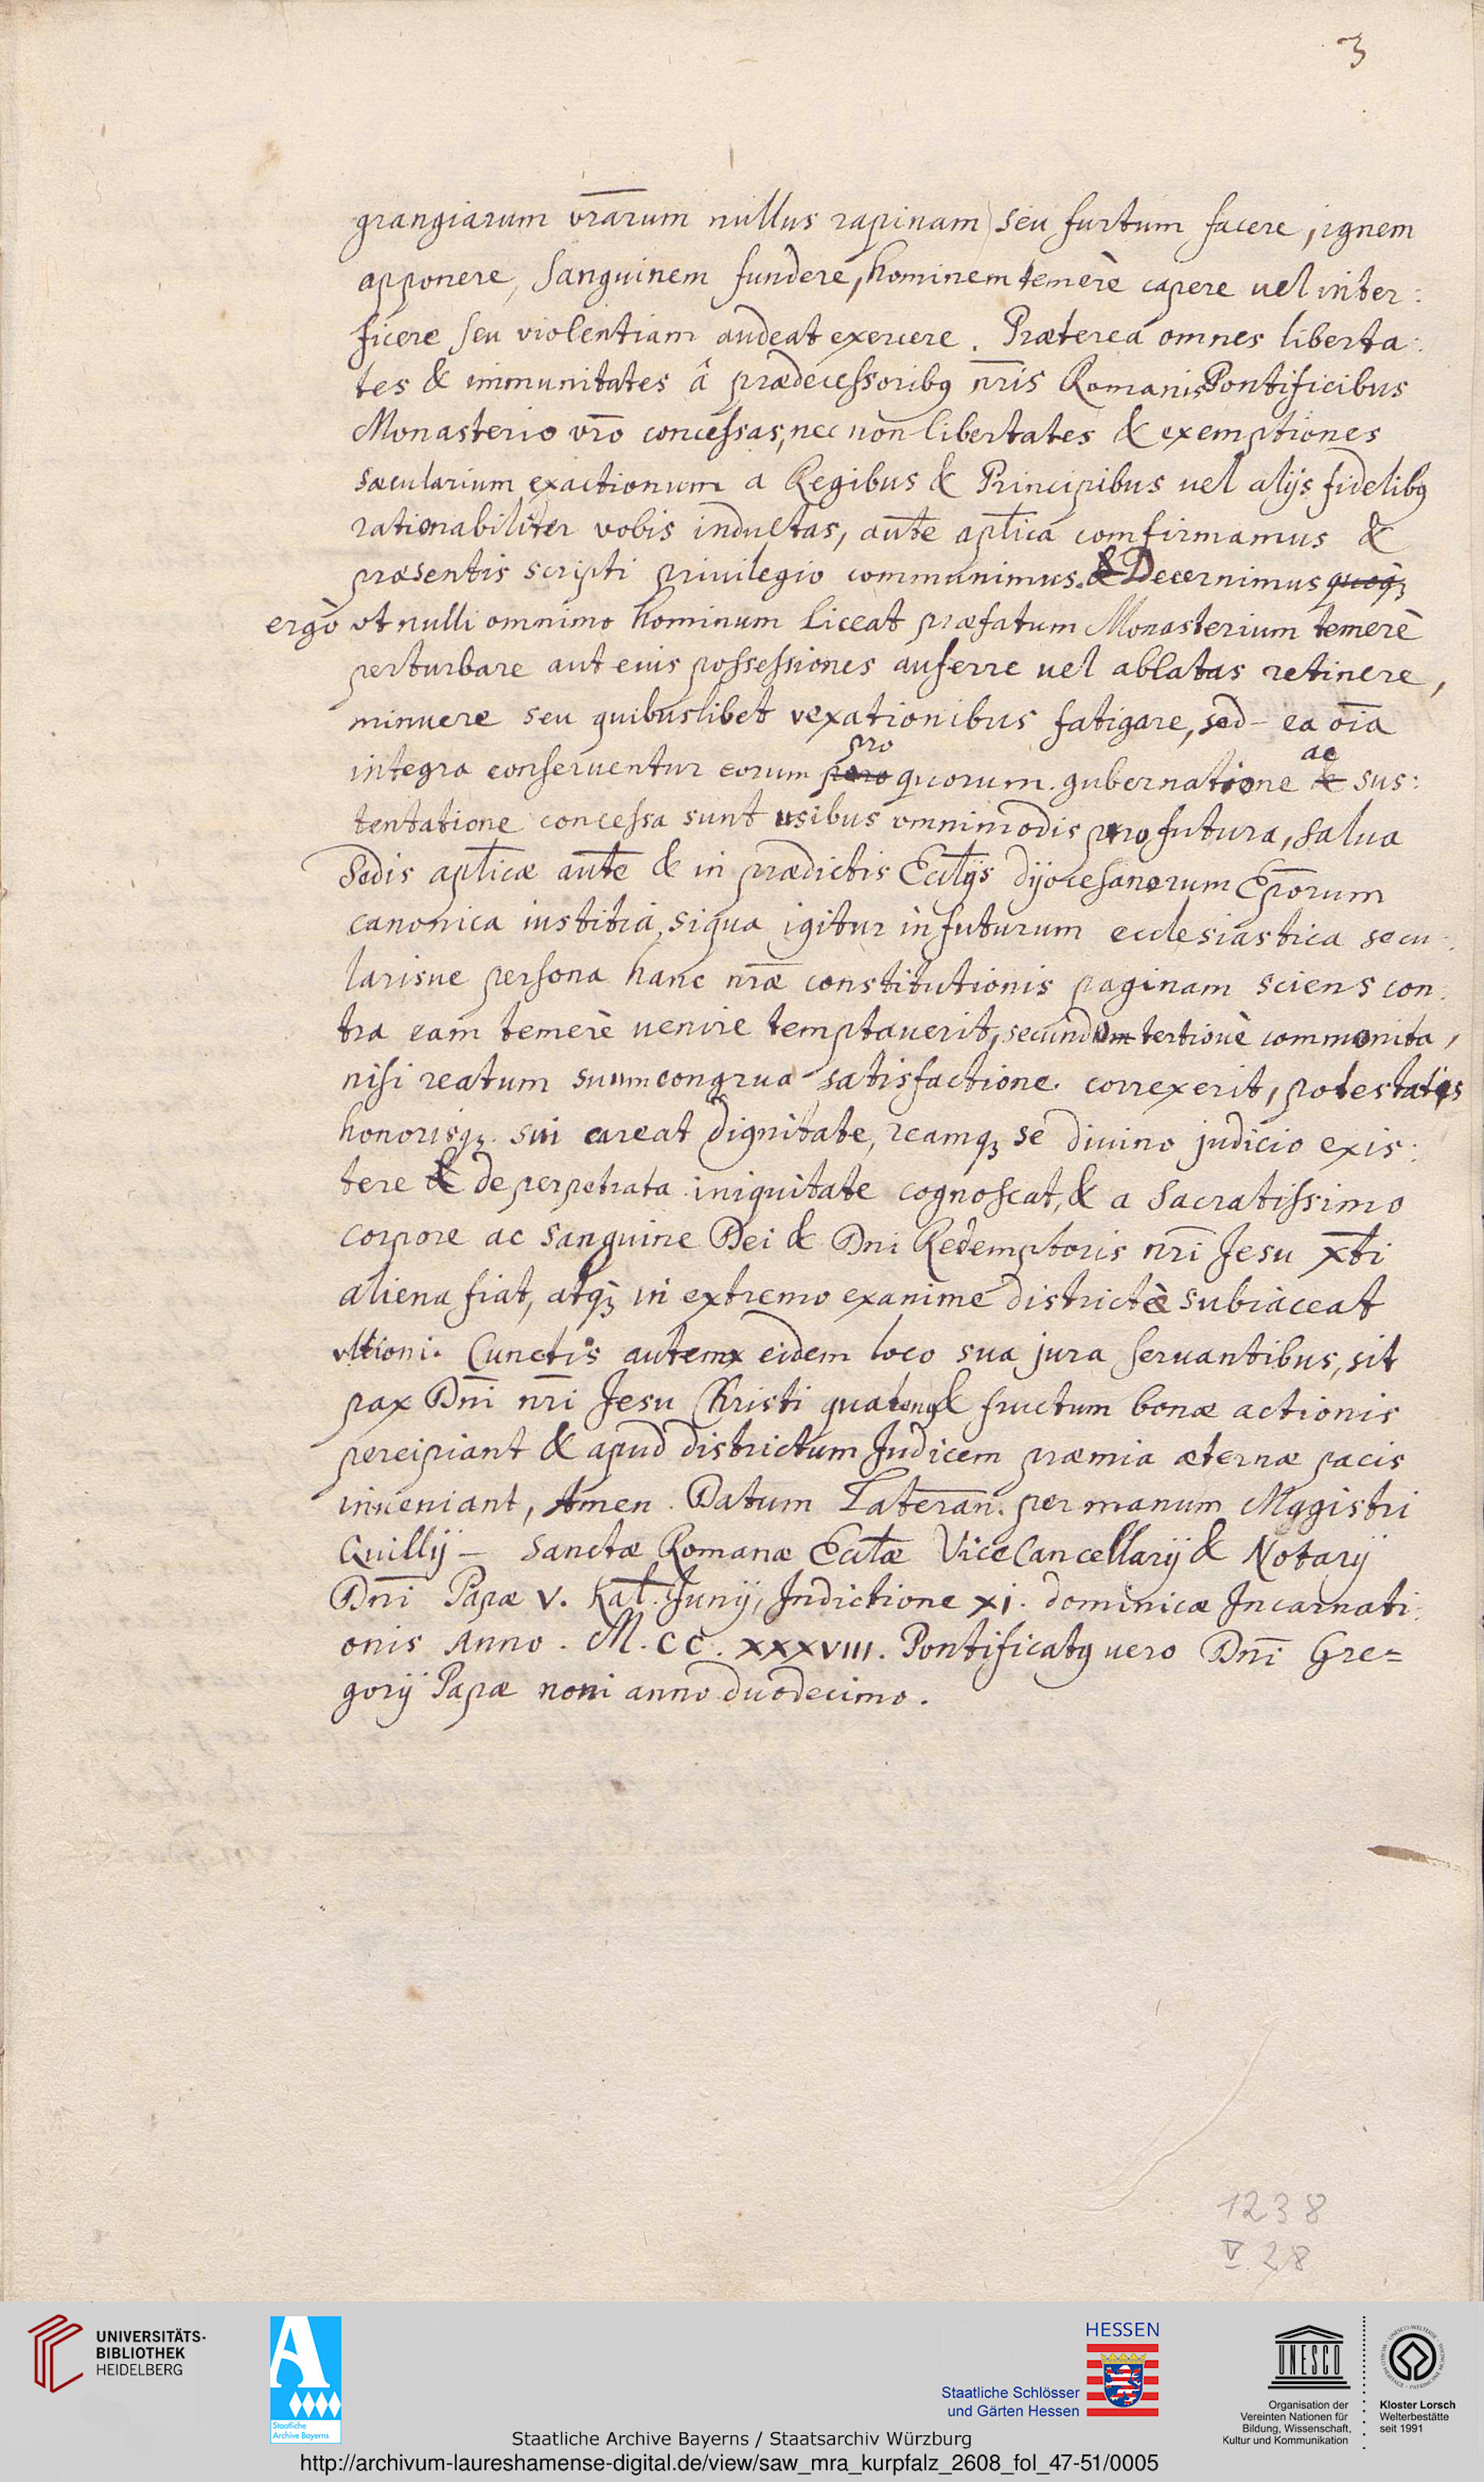 3
grangiarum vr̄arum nullus rapinam seu furtum facere, ignem
apponere, sanguinem fundere, hominem temerè capere uel inter:
ficere seu violentiam audeat exercere. Præterea omnes liberta:
tes & immunitates â prædecessoribꝰ nr̄is Romanis Pontificibus
Monasterio vr̄o concessas, nec non libertates & exemptiones
sæcularium exactionum a Regibus & Principibus uel alijs fidelibꝰ
rationabiliter vobis indultas, aut̄e apl̄ica comfirmamus &
præsentis scripti priuilegio communimus. & Decernimus quoqꝫ
ergò vt nulli omnimo hominum liceat præfatum Monasterium temerè
perturbare aut euis possessiones auferre uel ablatas retinere,
minuere seu quibuslibet vexationibus fatigare, sed - ea oīa
pro ac
integra conseruentur eorum pero quorum gubernatione & sus:
tentatione concessa sunt usibus omnimodis pro futura, salua
Sedis apl̄icæ aut̄e & in prædictis Eccl̄ijs dijocesanorum Ep̄orum
canonica iustitia, siqua igitur in futurum ecclesiastica secu:
larisue persona hanc nr̄æ constitutionis paginam sciens con:
tra eam temerè uenire temptauerit, secundo tertiouè commonita,
nisi reatum suum congrua satisfactione correxerit, potestatis
honorisqꝫ sui careat dignitate, reamqꝫ se diuino judicio exis:
tere & de perpetrata iniquitate cognoscat, & a sacratissimo
corpore ac sanguine Dei & Dni Redemptoris nr̄i Jesu xt̄i
aliena fiat, atqꝫ in extremo exanime districtè subiaceat
vltioni. Cunctis autem eidem loco sua jura seruantibus, sit
pax Dn̄i nr̄i Jesu Christi quatenꝰ & fructum bonæ actionis
percipiant & apud districtum Judicem præmia æternæ pacis
inueniant, Amen. Datum Lateran̄. per manum Magistri
Quillij - Sanctæ Romanæ Eccl̄æ Vice Cancellarij & Notarij
Dn̄i Papæ V. Kal̄. Junij, Indictione xi. dominicæ Incarnati:
onis Anno. M. CC. XXXVIII. Pontificatꝰ uero Dn̄i Gre=
gorij Papæ noni anno duodecimo.
1238
V. 28
UNIVERSITÄTS-
BIBLIOTHEK
HEIDELBERG
Staatliche
Archive Bayerns
HESSEN
Staatliche Schlösser
und Gärten Hessen
UNESCO
Organisation der
Vereinten Nationen für
Bildung, Wissenschaft,
Kultur und Kommunikation
Kloster Lorsch
Welterbestätte
seit 1991
Staatliche Archive Bayerns / Staatsarchiv Würzburg
http://archivum-laureshamense-digital.de/view/saw_mra_kurpfalz_2608_fol_47-51/0005